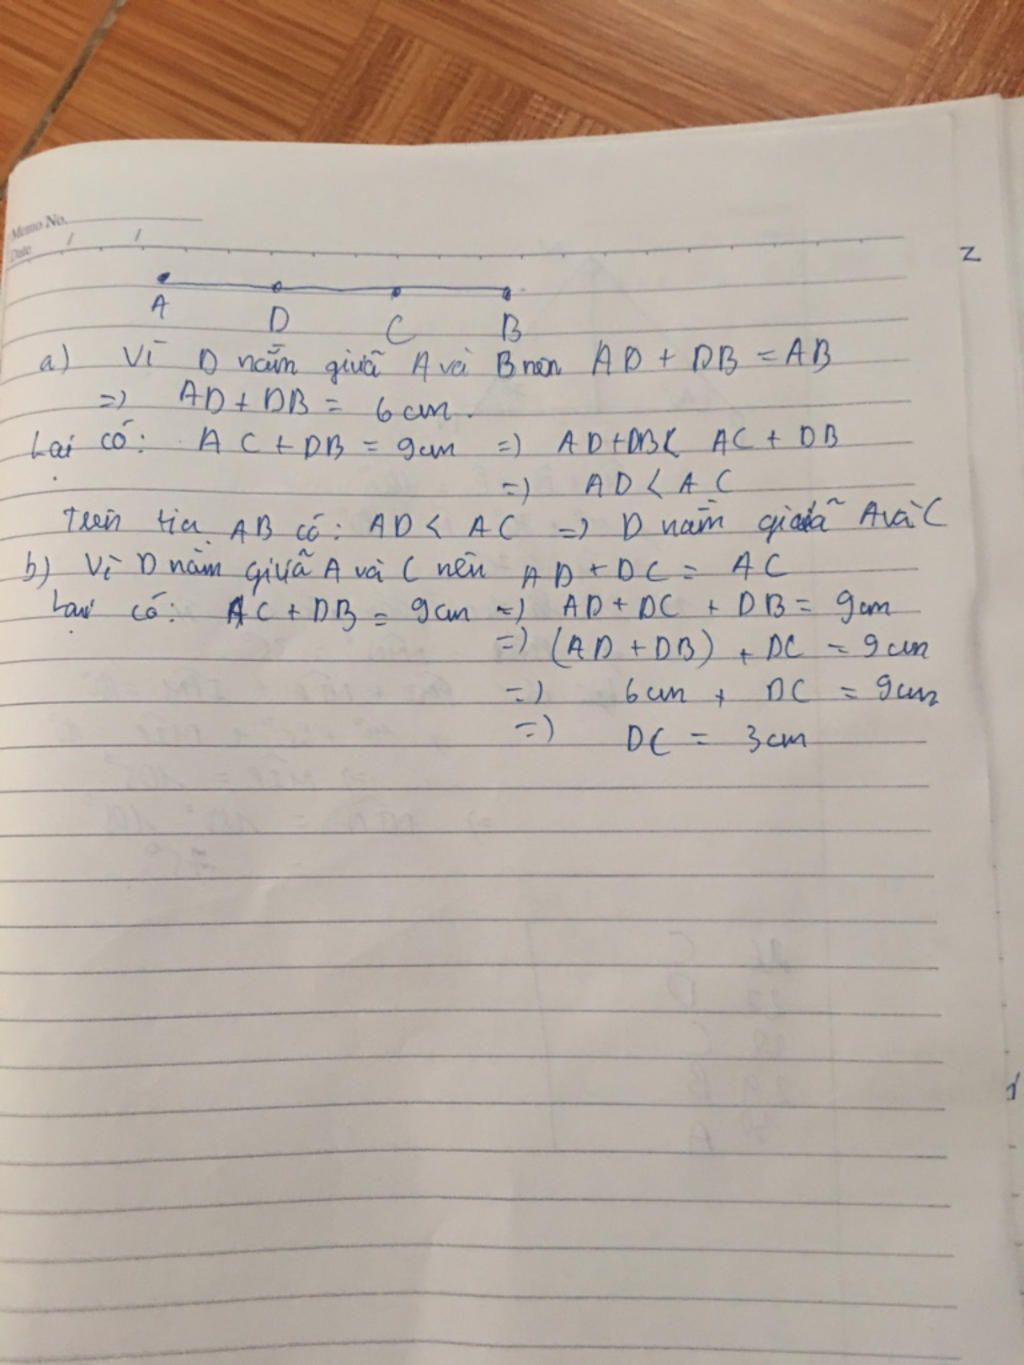 Memo No.
Date / /
z
A D C B
a) Vì D nằm giữa A và B nên AD + DB = AB
=> AD + DB = 6 cm.
Lại có: AC + DB = 9cm => AD+DB < AC + DB
=> AD < AC
Trên tia AB có: AD < AC => D nằm giữa A và C
b) Vì D nằm giữa A và C nên AD + DC = AC
Lại có: AC + DB = 9cm => AD + DC + DB = 9cm
=> (AD + DB) + DC = 9cm
=> 6cm + DC = 9cm
=> DC = 3cm